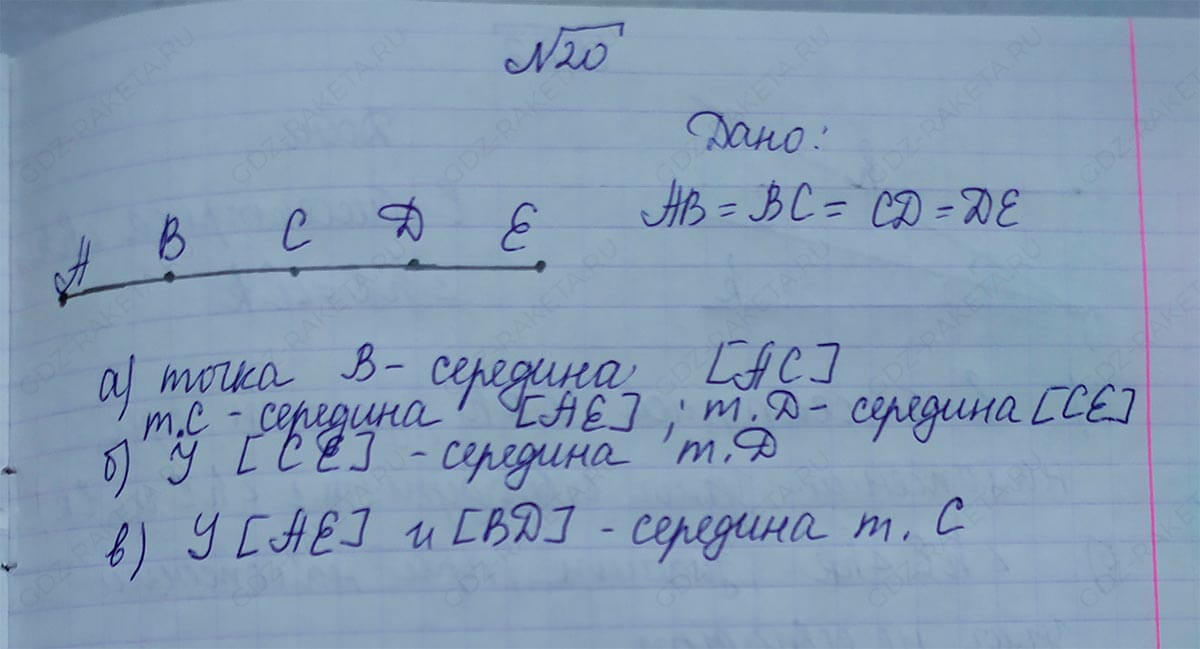 №20
Дано:
AB = BC = CD = DE
A B C D E
а) точка B - середина [AC]
т.C - середина [AE] ; т.D - середина [CE]
б) У [CE] - середина т.D
в) У [AE] и [BD] - середина т. C
GDZ-RAKETA.RU